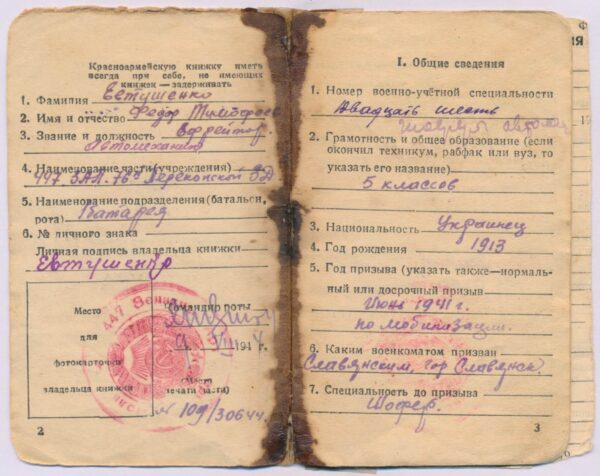 Красноармейскую книжку иметь
всегда при себе, не имеющих
книжек — задерживать
1. Фамилия Евтушенко
2. Имя и отчество Федор
3. Звание и должность Ефрейтор.
Автомеханик
4. Наименование части (учреждения)
447 ЗАП. 76й Перекопской
5. Наименование подразделения (батальон,
рота) Батарея
6. № личного знака
Личная подпись владельца книжки
Евтушенко
Место
для
фотокарточки
владельца книжки
Командир роты
194 г.
(Место
печати части)
№ 109/30644.
2
I. Общие сведения
1. Номер военно-учётной специальности
Двадцать шесть
2. Грамотность и общее образование (если
окончил техникум, рабфак или вуз, то
указать его название)
5 классов
3. Национальность Украинец
4. Год рождения 1913
5. Год призыва (указать также—нормаль-
ный или досрочный призыв
Июнь 1941 г.
по мобилизации.
6. Каким военкоматом призван
Славянским, гор. Славянск.
7. Специальность до призыва
Шофер.
3